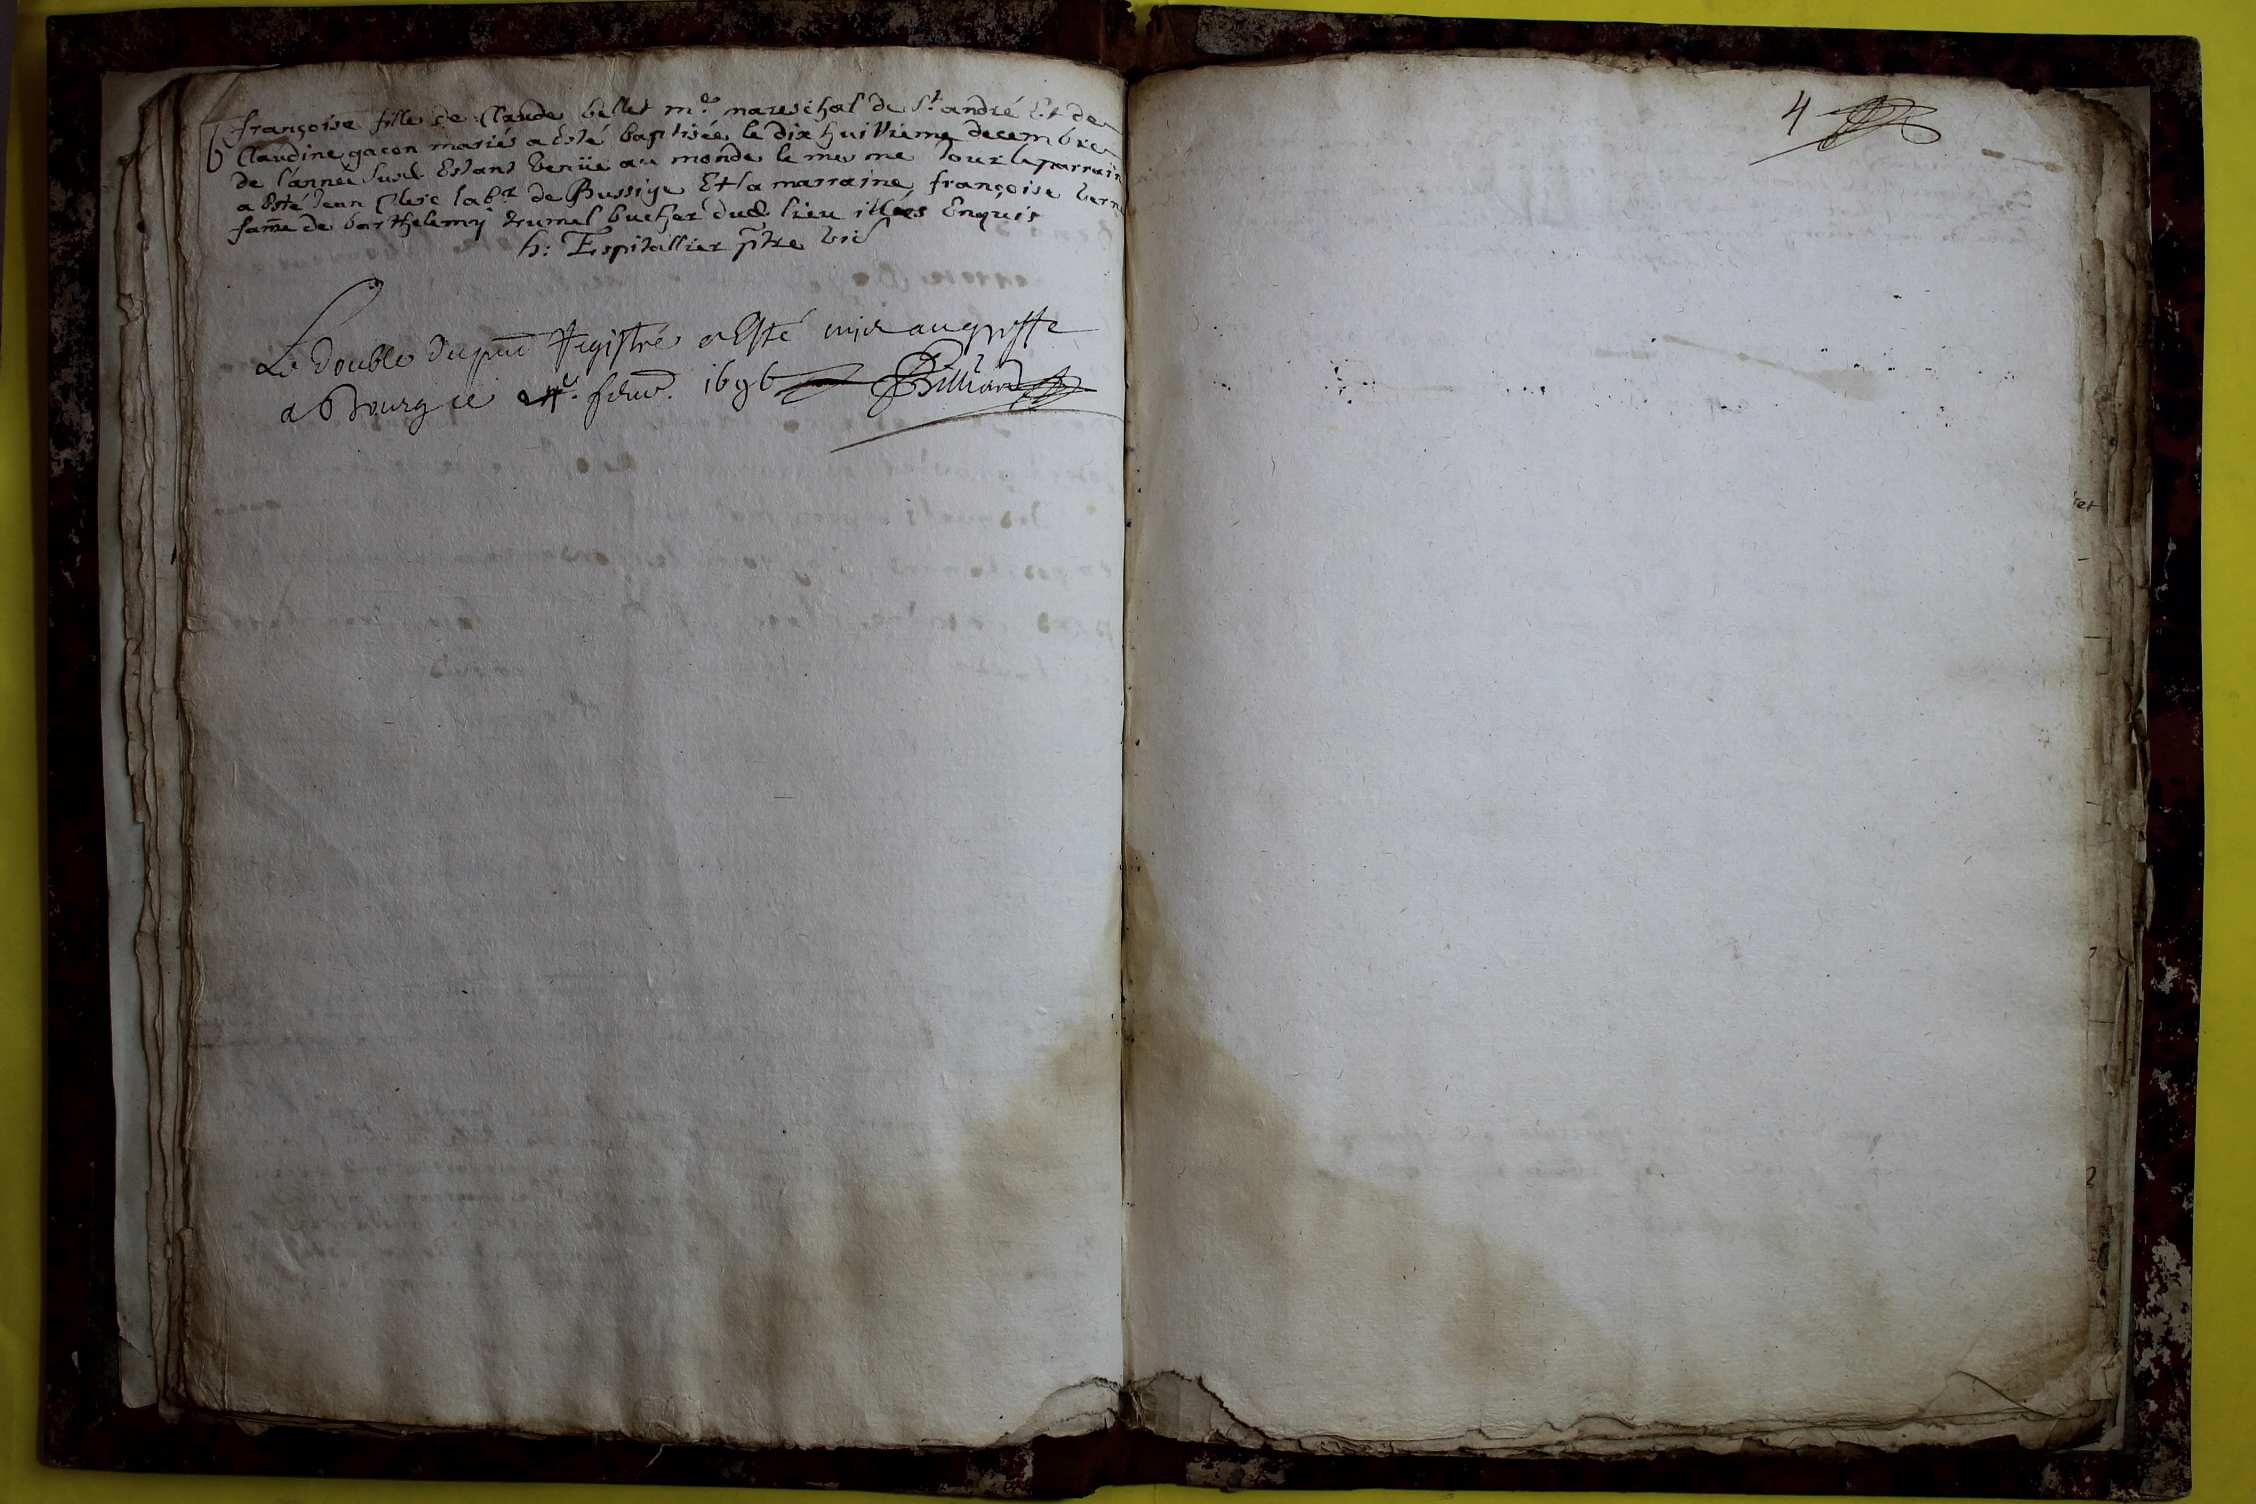 b françoise fille de Claude bellet m.e mareschal de S.t andré Et de
Claudine gacon mariés a Esté baptisée le dix huittieme decembre
de l'année susd Estant venüe au monde le mesme Jour le parrain
a Esté Jean Clerc lab.r de Bussige Et la marraine françoise
fame de barthelemy bucher dud lieu illérés Enquis
h: Espitallier ptre vic
Le double du pnt Registre a Esté mis au greffe
a Bourg ce fevr. 1696 Billiard
4